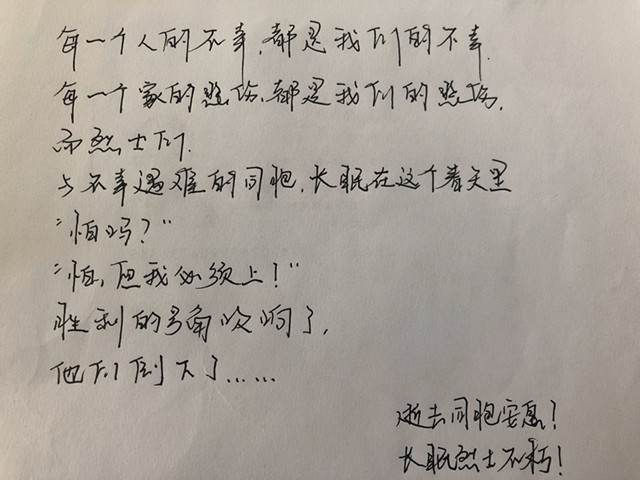 每一个人的不幸,都是我们的不幸.
每一个家的悲伤,都是我们的悲伤,
而烈士们,
与不幸遇难的同胞,长眠在这个春天里
“怕吗?”
“怕,但我必须上!”
胜利的号角吹响了,
他们倒下了……
逝去同胞安息!
长眠烈士不朽!